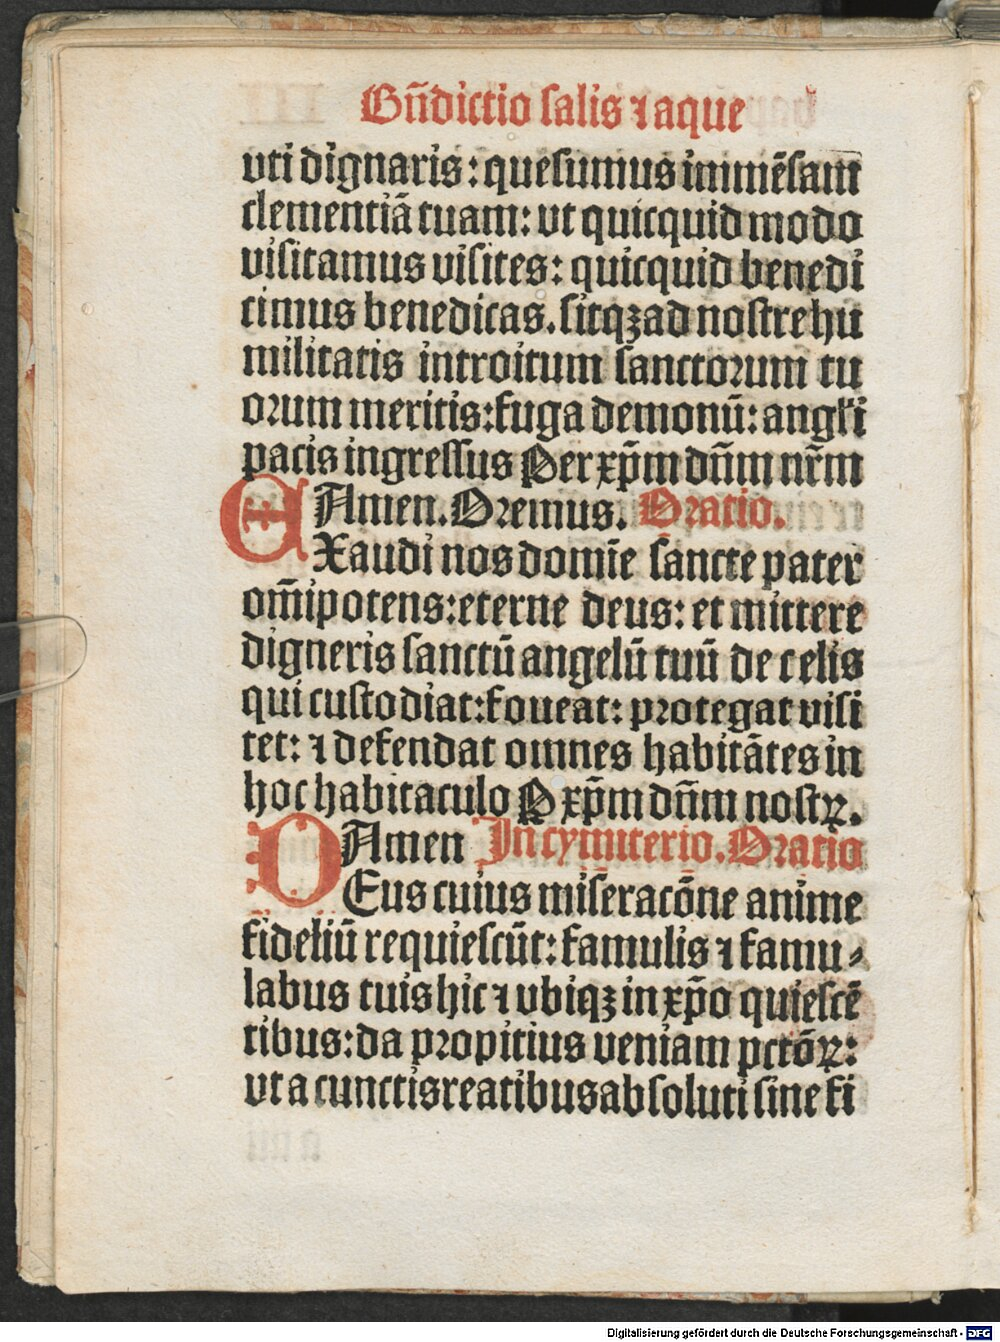 Bñdictio salis ⁊ aque
vti dignaris: quesumus immēsam
clementiā tuam: vt quicquid modo
visitamus visites: quicquid benedi
cimus benedicas. sitqꝫ ad nostre hu
militatis introitum sanctorum tu
orum meritis: fuga demonū: angĺi
pacis ingressus Per xp̄m dn̄m nr̄m
Amen. Oremus. Oratio.
EXaudi nos domīe sancte pater
om̄ipotens: eterne deus: et mittere
digneris sanctū angelū tuū de celis
qui custodiat: foueat: protegat visi
tet: ⁊ defendat omnes habitātes in
hoc habitaculo P xp̄m dn̄m nostꝝ.
Amen In cymiterio. Oratio
DEus cuius miseracōne anime
fideliū requiescūt: famulis ⁊ famu⸗
labus tuis hic ⁊ vbiqꝫ in xp̄o quiescē
tibus: da propitius veniam pctōꝝ:
vt a cunctis reatibus absoluti sine fi
Digitalisierung gefördert durch die Deutsche Forschungsgemeinschaft - DFG